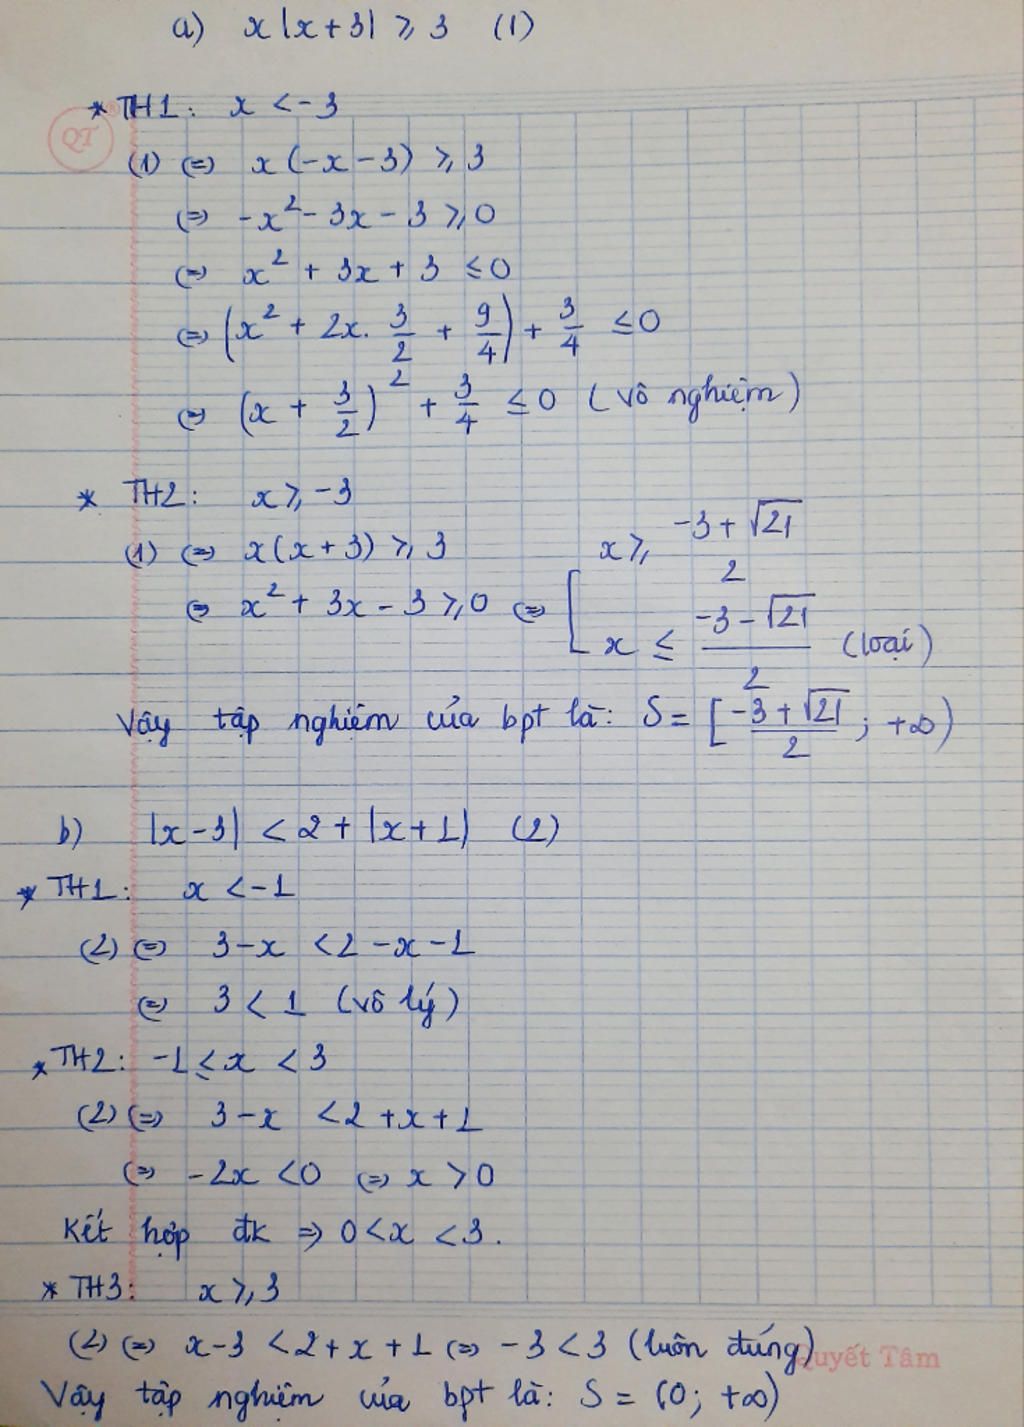 a) x|x+3| ⩾ 3 (1)
* TH1: x < -3
QT
(1) (=) x(-x-3) ⩾ 3
(=) -x² - 3x - 3 ⩾ 0
(=) x² + 3x + 3 ≤ 0
(=) (x² + 2x. 3/2 + 9/4) + 3/4 ≤ 0
(=) (x + 3/2)² + 3/4 ≤ 0 (vô nghiệm)
* TH2: x ⩾ -3
(1) (=) x(x+3) ⩾ 3
(=) x² + 3x - 3 ⩾ 0 (=) [ x ⩾ (-3+√21)/2
x ≤ (-3-√21)/2 (loại)
Vậy tập nghiệm của bpt là: S = [(-3+√21)/2; +∞)
b) |x-3| < 2 + |x+1| (2)
* TH1: x < -1
(2) (=) 3-x < 2-x-1
(=) 3 < 1 (vô lý)
* TH2: -1 ≤ x < 3
(2) (=) 3-x < 2+x+1
(=) -2x < 0 (=) x > 0
Kết hợp đk => 0 < x < 3.
* TH3: x ⩾ 3
(2) (=) x-3 < 2+x+1 (=) -3 < 3 (luôn đúng)
Quyết Tâm
Vậy tập nghiệm của bpt là: S = (0; +∞)